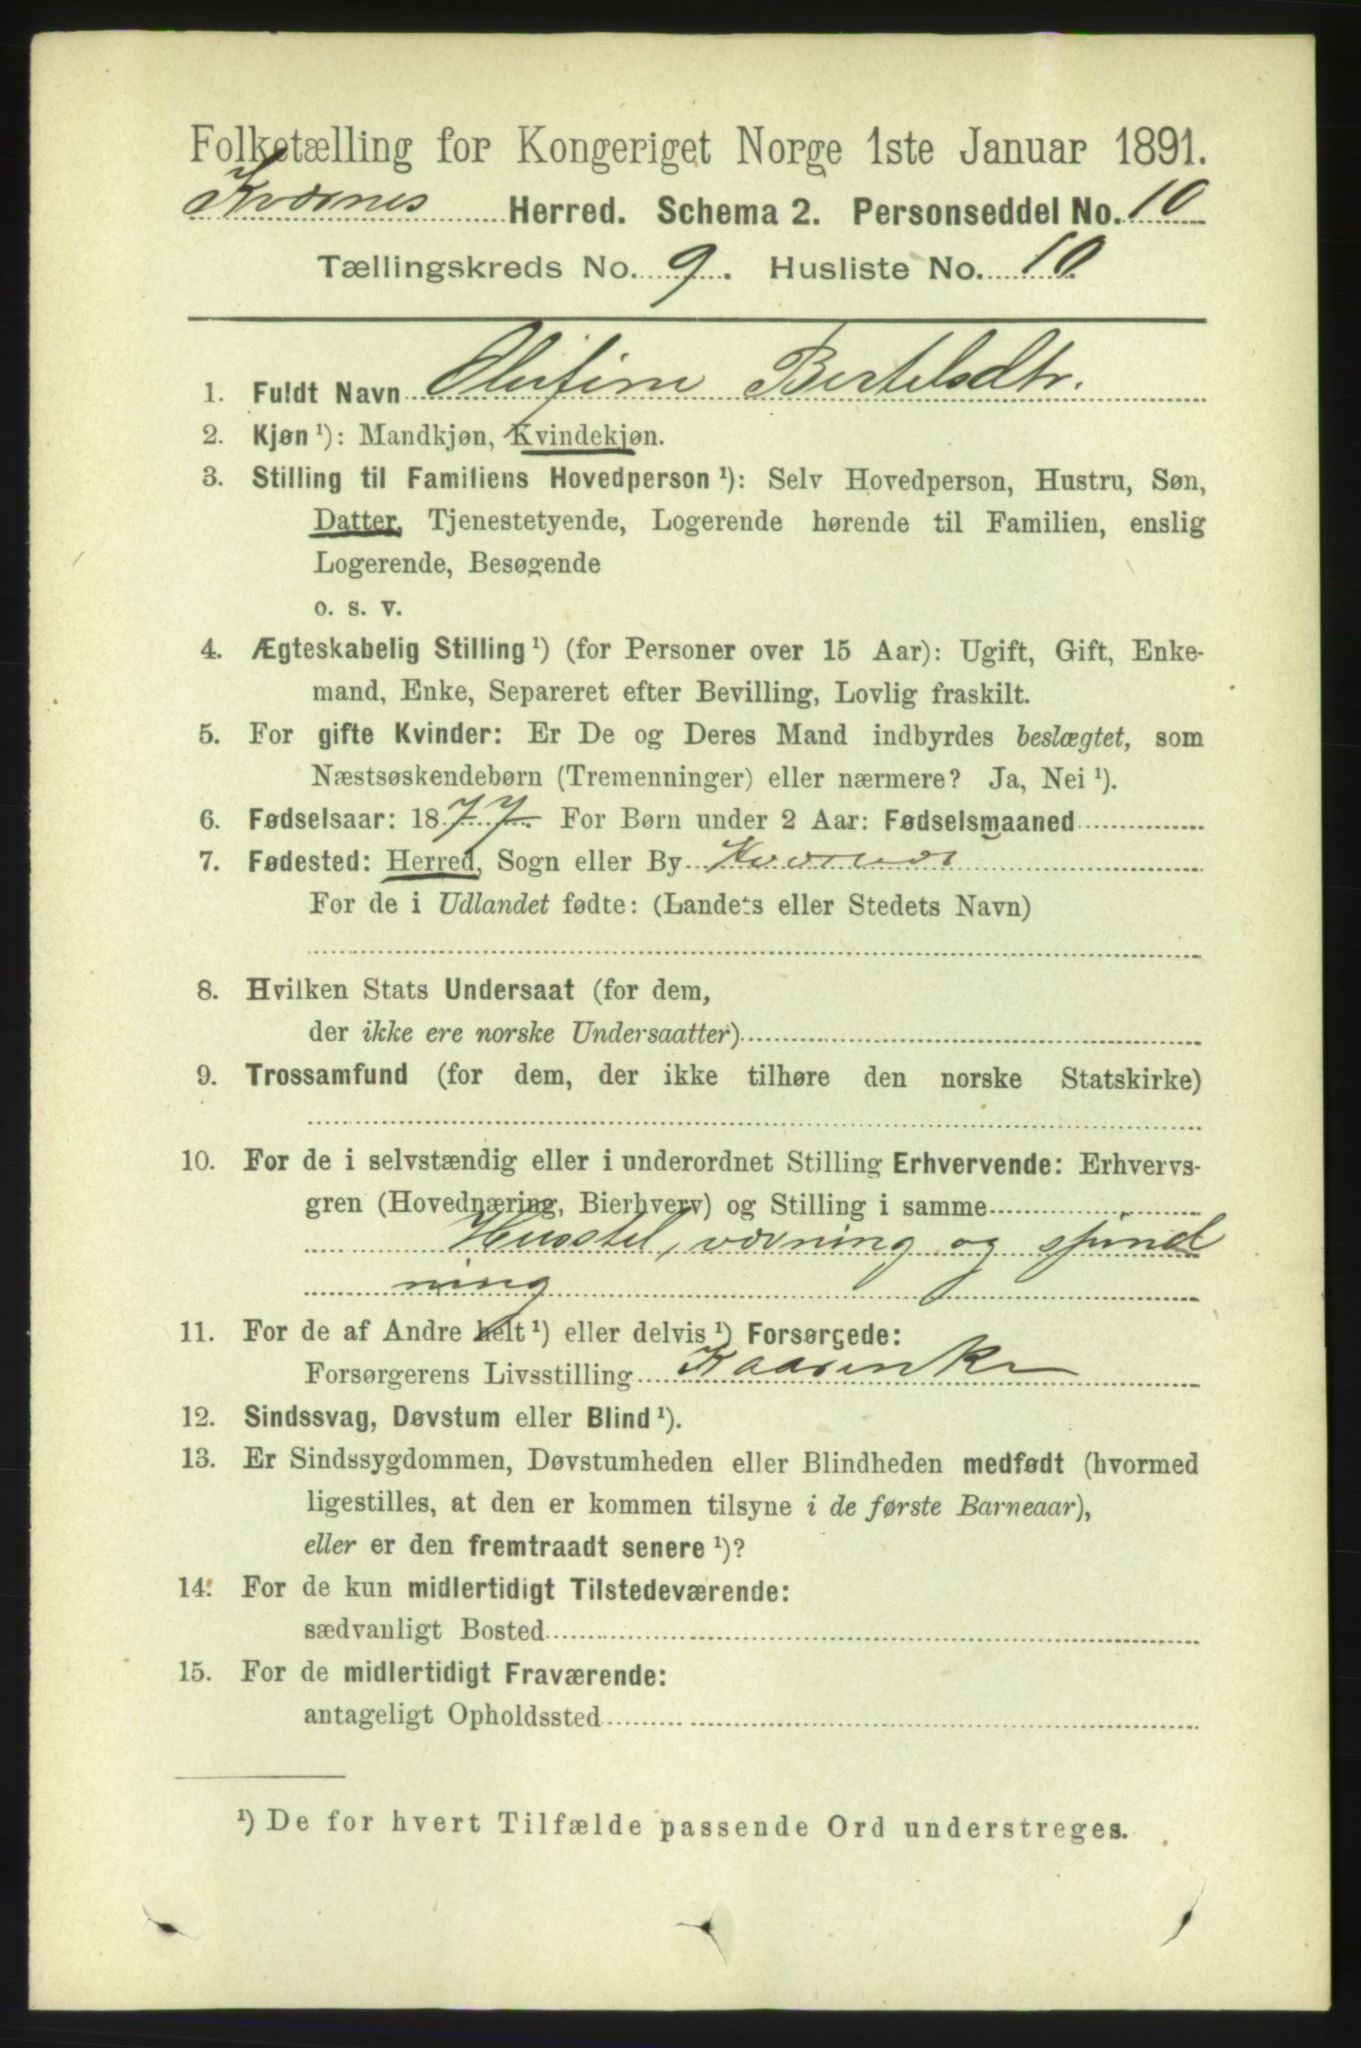 Folketælling for Kongeriget Norge 1ste Januar 1891.
Kværnes Herred. Schema 2. Personseddel No. 10
Tællingskreds No. 9. Husliste No. 10.
1. Fuldt Navn Olufine Bertelsdtr.
2. Kjøn¹): Mandkjøn, Kvindekjøn.
3. Stilling til Familiens Hovedperson¹): Selv Hovedperson, Hustru, Søn,
Datter, Tjenestetyende, Logerende hørende til Familien, enslig
Logerende, Besøgende
o. s. v.
4. Ægteskabelig Stilling¹) (for Personer over 15 Aar): Ugift, Gift, Enke-
mand, Enke, Separeret efter Bevilling, Lovlig fraskilt.
5. For gifte Kvinder: Er De og Deres Mand indbyrdes beslægtet, som
Næstsøskendebørn (Tremenninger) eller nærmere? Ja, Nei¹).
6. Fødselsaar: 1877. For Børn under 2 Aar: Fødselsmaaned
7. Fødested: Herred, Sogn eller By Kværnes
For de i Udlandet fødte: (Landets eller Stedets Navn)
8. Hvilken Stats Undersaat (for dem,
der ikke ere norske Undersaatter)
9. Trossamfund (for dem, der ikke tilhøre den norske Statskirke)
10. For de i selvstændig eller i underordnet Stilling Erhvervende: Erhvervs-
gren (Hovednæring, Bierhverv) og Stilling i samme
Husstel, vævning og spind
ning
11. For de af Andre helt¹) eller delvis¹) Forsørgede:
Forsørgerens Livsstilling Kaarenke
12. Sindssvag, Døvstum eller Blind¹).
13. Er Sindssygdommen, Døvstumheden eller Blindheden medfødt (hvormed
ligestilles, at den er kommen tilsyne i de første Barneaar),
eller er den fremtraadt senere¹)?
14. For de kun midlertidigt Tilstedeværende:
sædvanligt Bosted
15. For de midlertidigt Fraværende:
antageligt Opholdssted
¹) De for hvert Tilfælde passende Ord understreges.